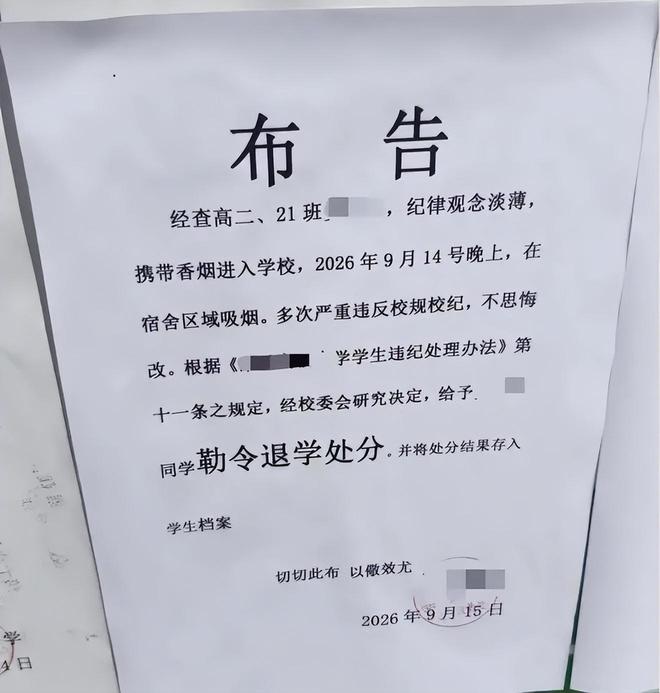 布 告
经查高二、21班 ，纪律观念淡薄，
携带香烟进入学校，2026年9月14号晚上，在
宿舍区域吸烟。多次严重违反校规校纪，不思悔
改。根据《 学学生违纪处理办法》第
十一条之规定，经校委会研究决定，给予
同学勒令退学处分。并将处分结果存入
学生档案
切切此布 以儆效尤
2026年9月15日
学
4日